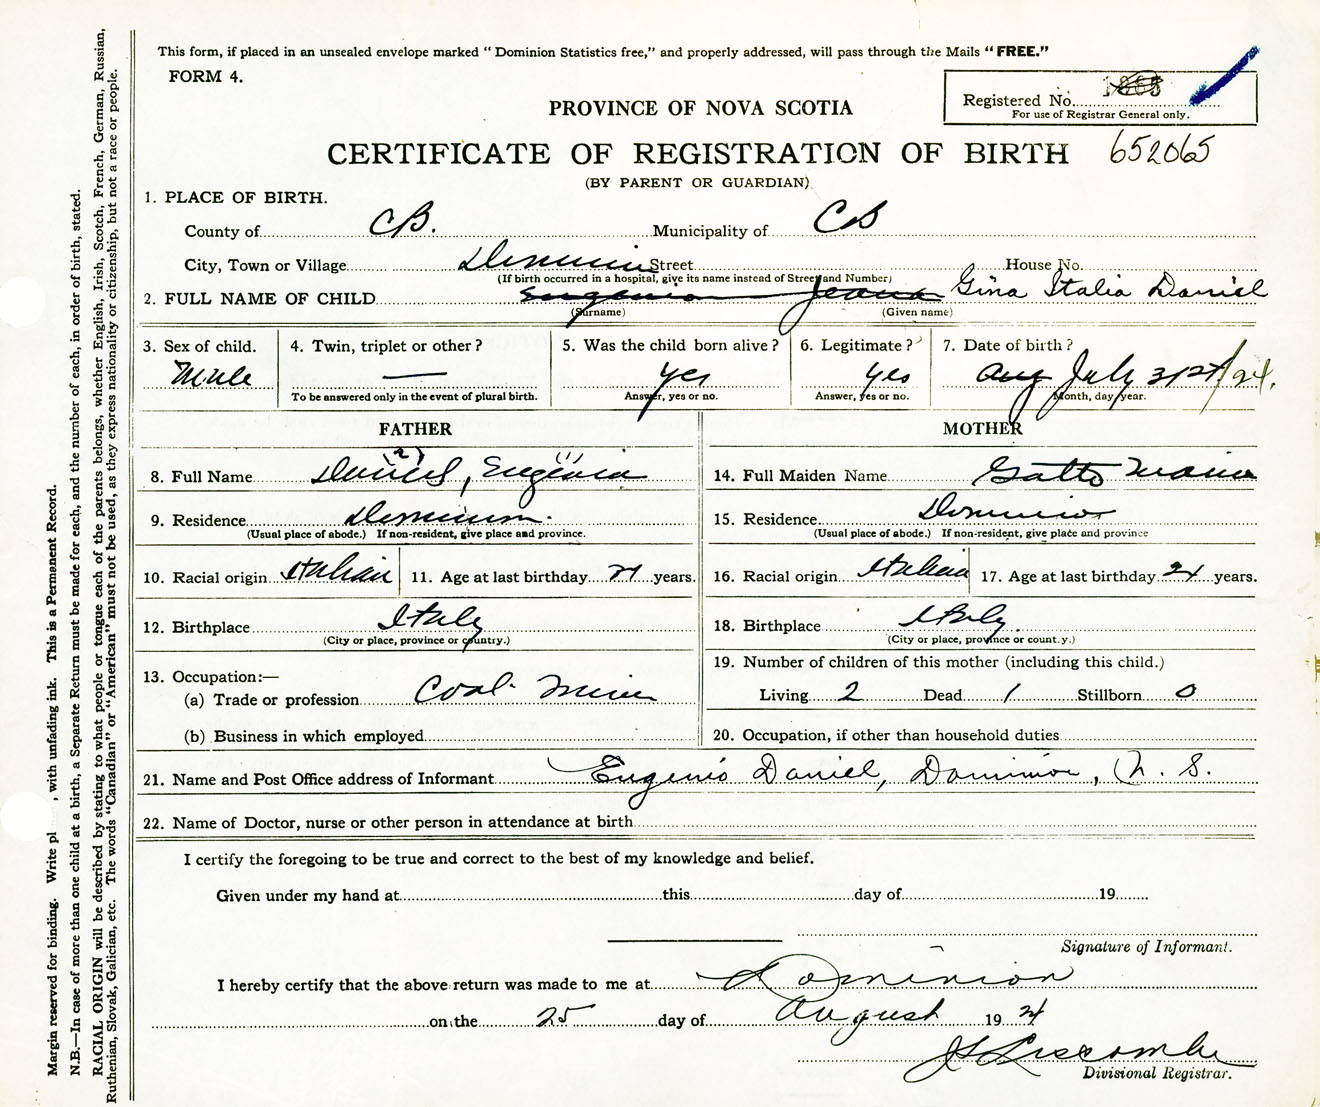 This form, if placed in an unsealed envelope marked “Dominion Statistics free,” and properly addressed, will pass through the Mails “FREE.”
FORM 4.
Registered No.
For use of Registrar General only.
PROVINCE OF NOVA SCOTIA
CERTIFICATE OF REGISTRATION OF BIRTH 652065
(BY PARENT OR GUARDIAN)
1. PLACE OF BIRTH.
County of C.B. Municipality of CB
City, Town or Village Dominion Street House No.
(If birth occurred in a hospital, give its name instead of Street and Number)
2. FULL NAME OF CHILD Eugenio Jeana Gina Italia Daniel
(Surname) (Given name)
3. Sex of child. 4. Twin, triplet or other? 5. Was the child born alive? 6. Legitimate? 7. Date of birth?
Male — yes yes Aug July 31st/24.
To be answered only in the event of plural birth. Answer, yes or no. Answer, yes or no. Month, day, year.
FATHER MOTHER
8. Full Name Daniel, Eugenio 14. Full Maiden Name Gatto Maria
9. Residence Dominion. 15. Residence Dominion
(Usual place of abode.) If non-resident, give place and province. (Usual place of abode.) If non-resident, give place and province
10. Racial origin Italian 11. Age at last birthday years. 16. Racial origin Italian 17. Age at last birthday 24 years.
12. Birthplace Italy 18. Birthplace Italy
(City or place, province or country.) (City or place, province or count.y.)
13. Occupation:— 19. Number of children of this mother (including this child.)
(a) Trade or profession Coal Miner Living 2 Dead 1 Stillborn 0
(b) Business in which employed 20. Occupation, if other than household duties
21. Name and Post Office address of Informant Eugenio Daniel, Dominion, N. S.
22. Name of Doctor, nurse or other person in attendance at birth
I certify the foregoing to be true and correct to the best of my knowledge and belief.
Given under my hand at this day of 19
Signature of Informant.
I hereby certify that the above return was made to me at Dominion
on the 25 day of August 19 24
Liscombe
Divisional Registrar.
Margin reserved for binding. Write pl , with unfading ink. This is a Permanent Record.
N.B.—In case of more than one child at a birth, a Separate Return must be made for each, and the number of each, in order of birth, stated.
RACIAL ORIGIN will be described by stating to what people or tongue each of the parents belongs, whether English, Irish, Scotch, French, German, Russian,
Ruthenian, Slovak, Galician, etc. The words “Canadian” or “American” must not be used, as they express nationality or citizenship, but not a race or people.